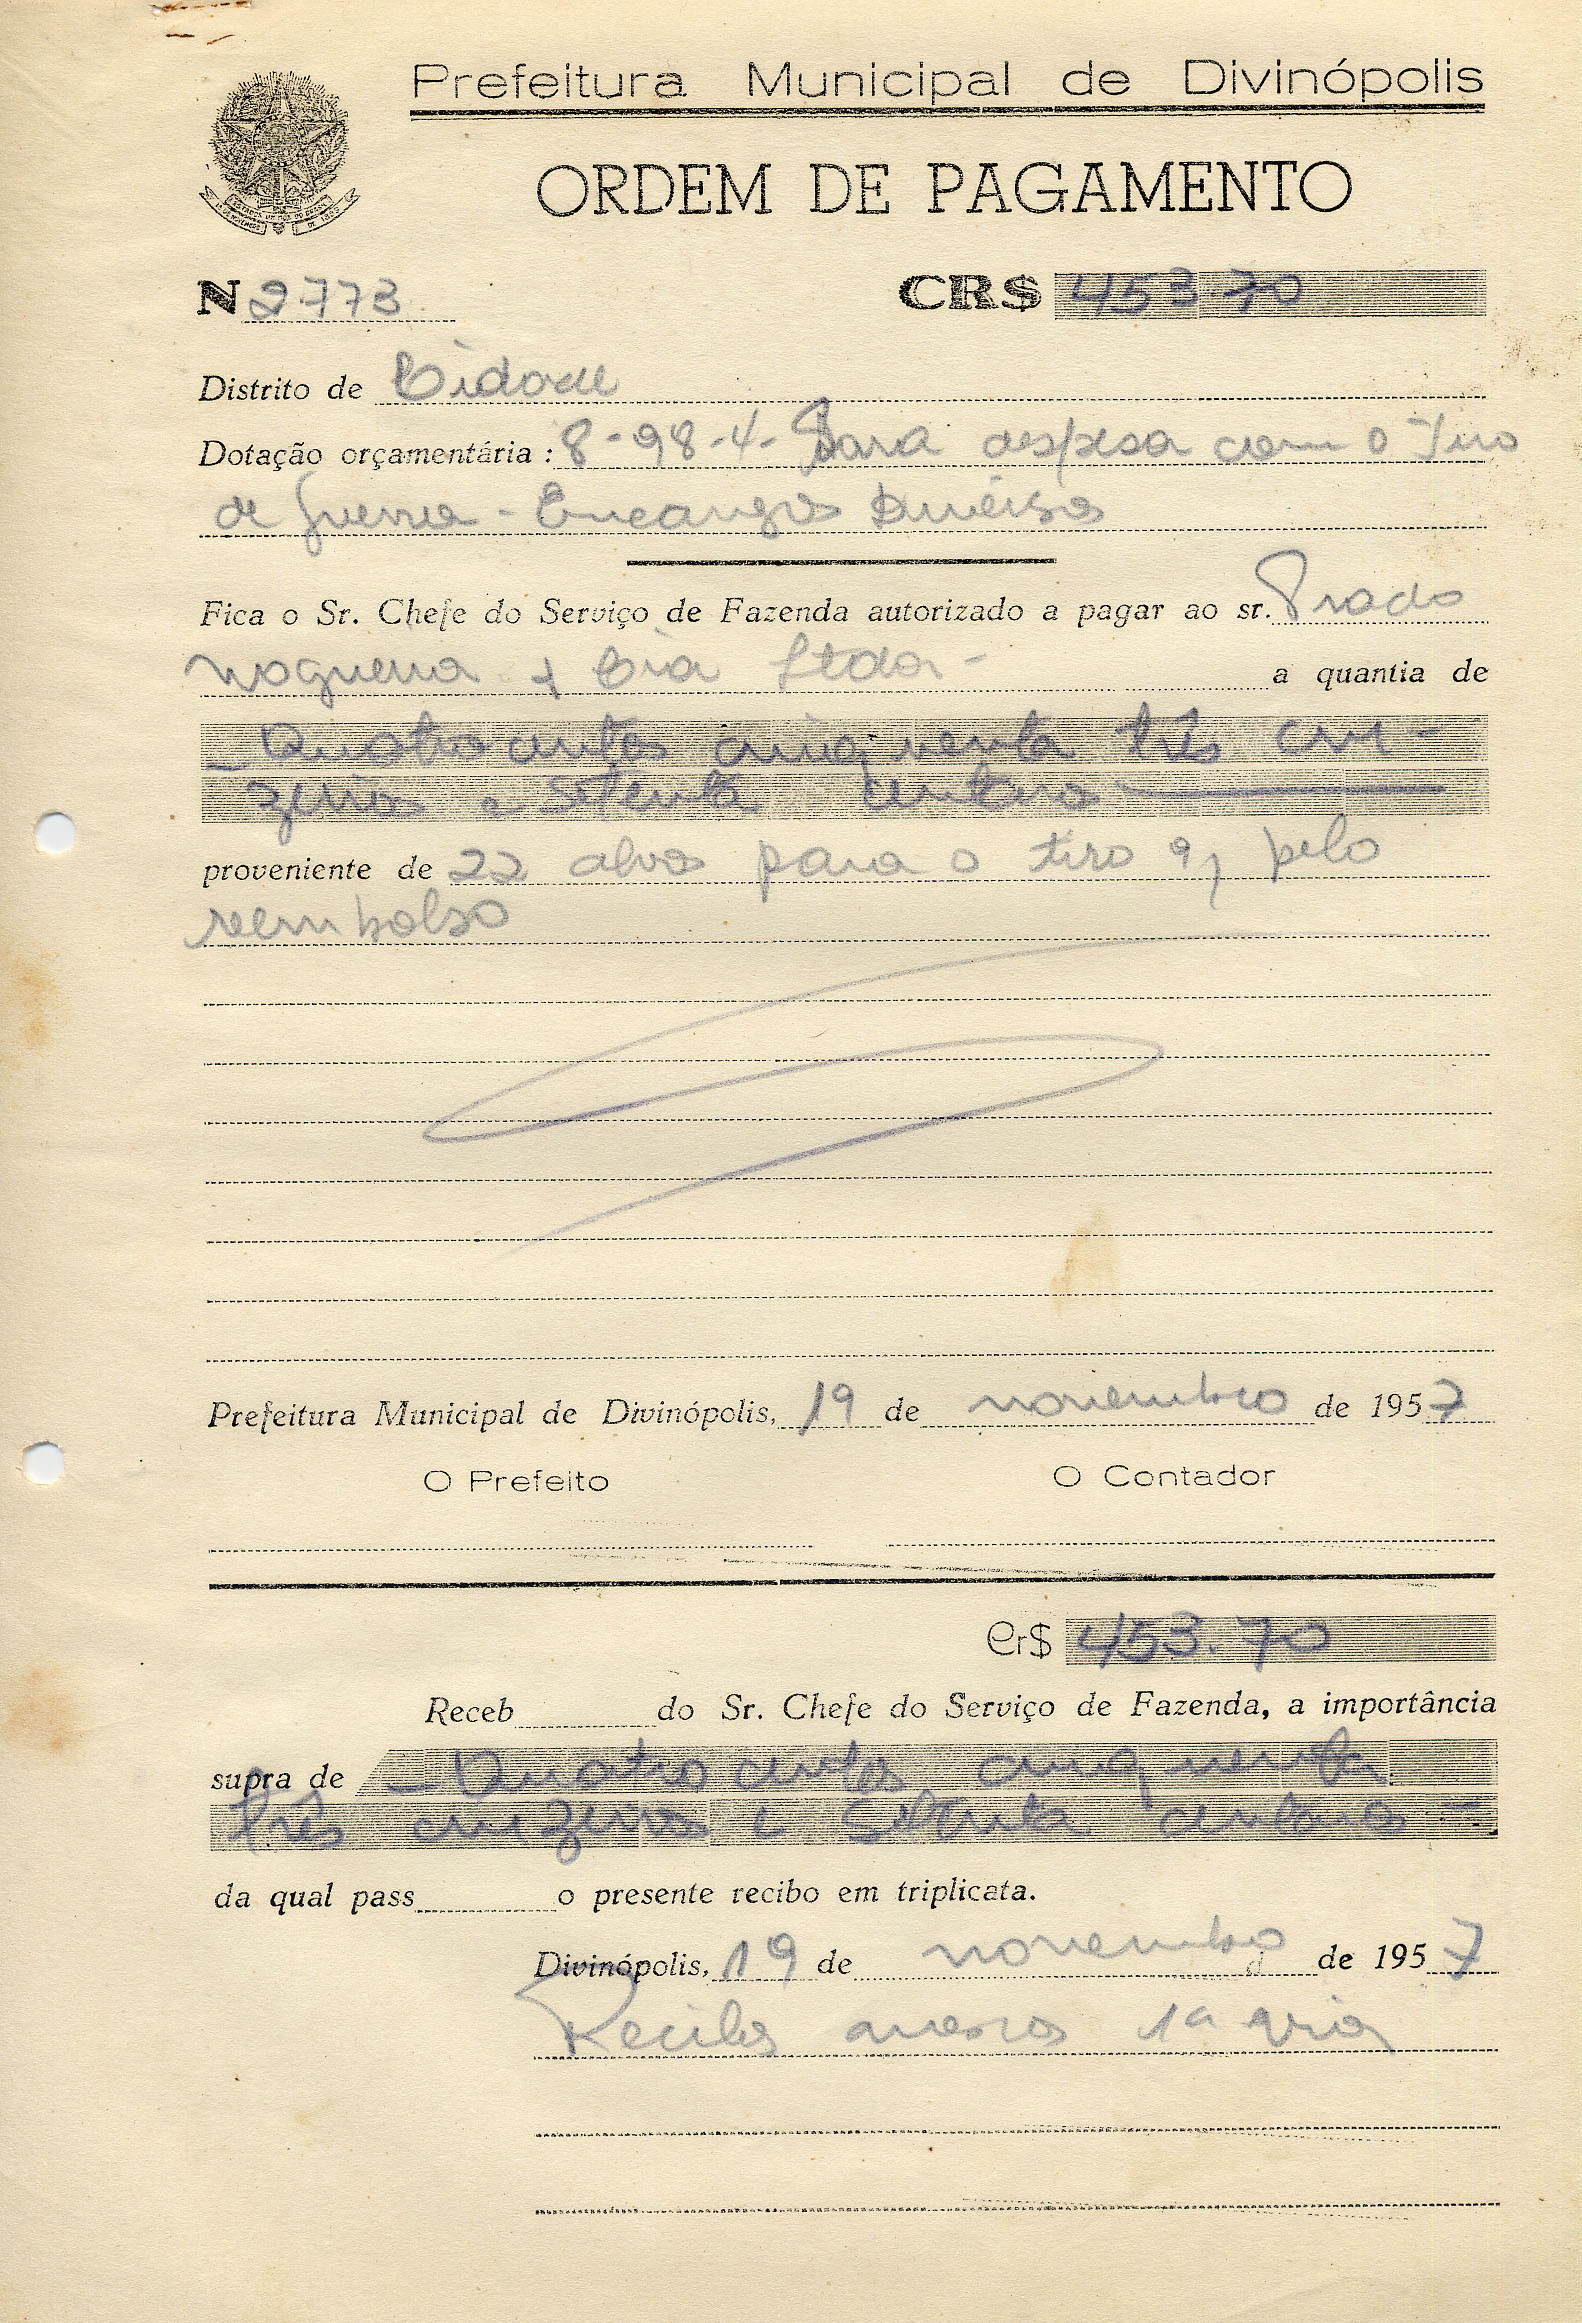 Prefeitura Municipal de Divinópolis
ORDEM DE PAGAMENTO
N 2773 CR$ 453 70
Distrito de Cidade
Dotação orçamentária : 8-98-4- Para despesa com o Tiro
de Guerra - Encargos Diversos
Fica o Sr. Chefe do Serviço de Fazenda autorizado a pagar ao sr. Prado
Nogueira & Cia Ltda - a quantia de
- Quatrocentos cinquenta três cru-
zeiros e setenta centavos
proveniente de 22 alvos para o tiro pelo
reembolso
Prefeitura Municipal de Divinópolis, 19 de novembro de 1957
O Prefeito O Contador
Cr$ 453.70
Receb do Sr. Chefe do Serviço de Fazenda, a importância
supra de - Quatrocentos cinquenta
três cruzeiros e setenta centavos -
da qual pass o presente recibo em triplicata.
Divinópolis, 19 de novembro de 1957
Recibos anexos 1ª via